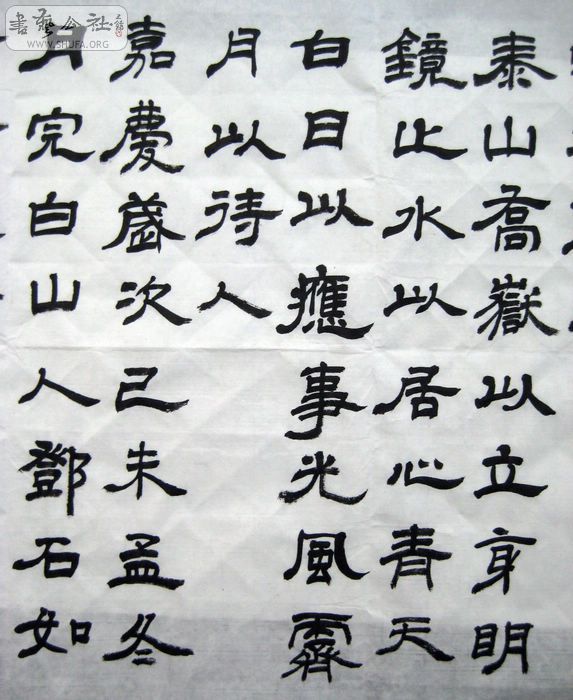 泰山喬嶽以立身明
鏡止水以居心青天
白日以應事光風霽
月以待人
嘉慶歲次己未孟冬
月完白山人鄧石如
書藝公社
WWW.SHUFA.ORG